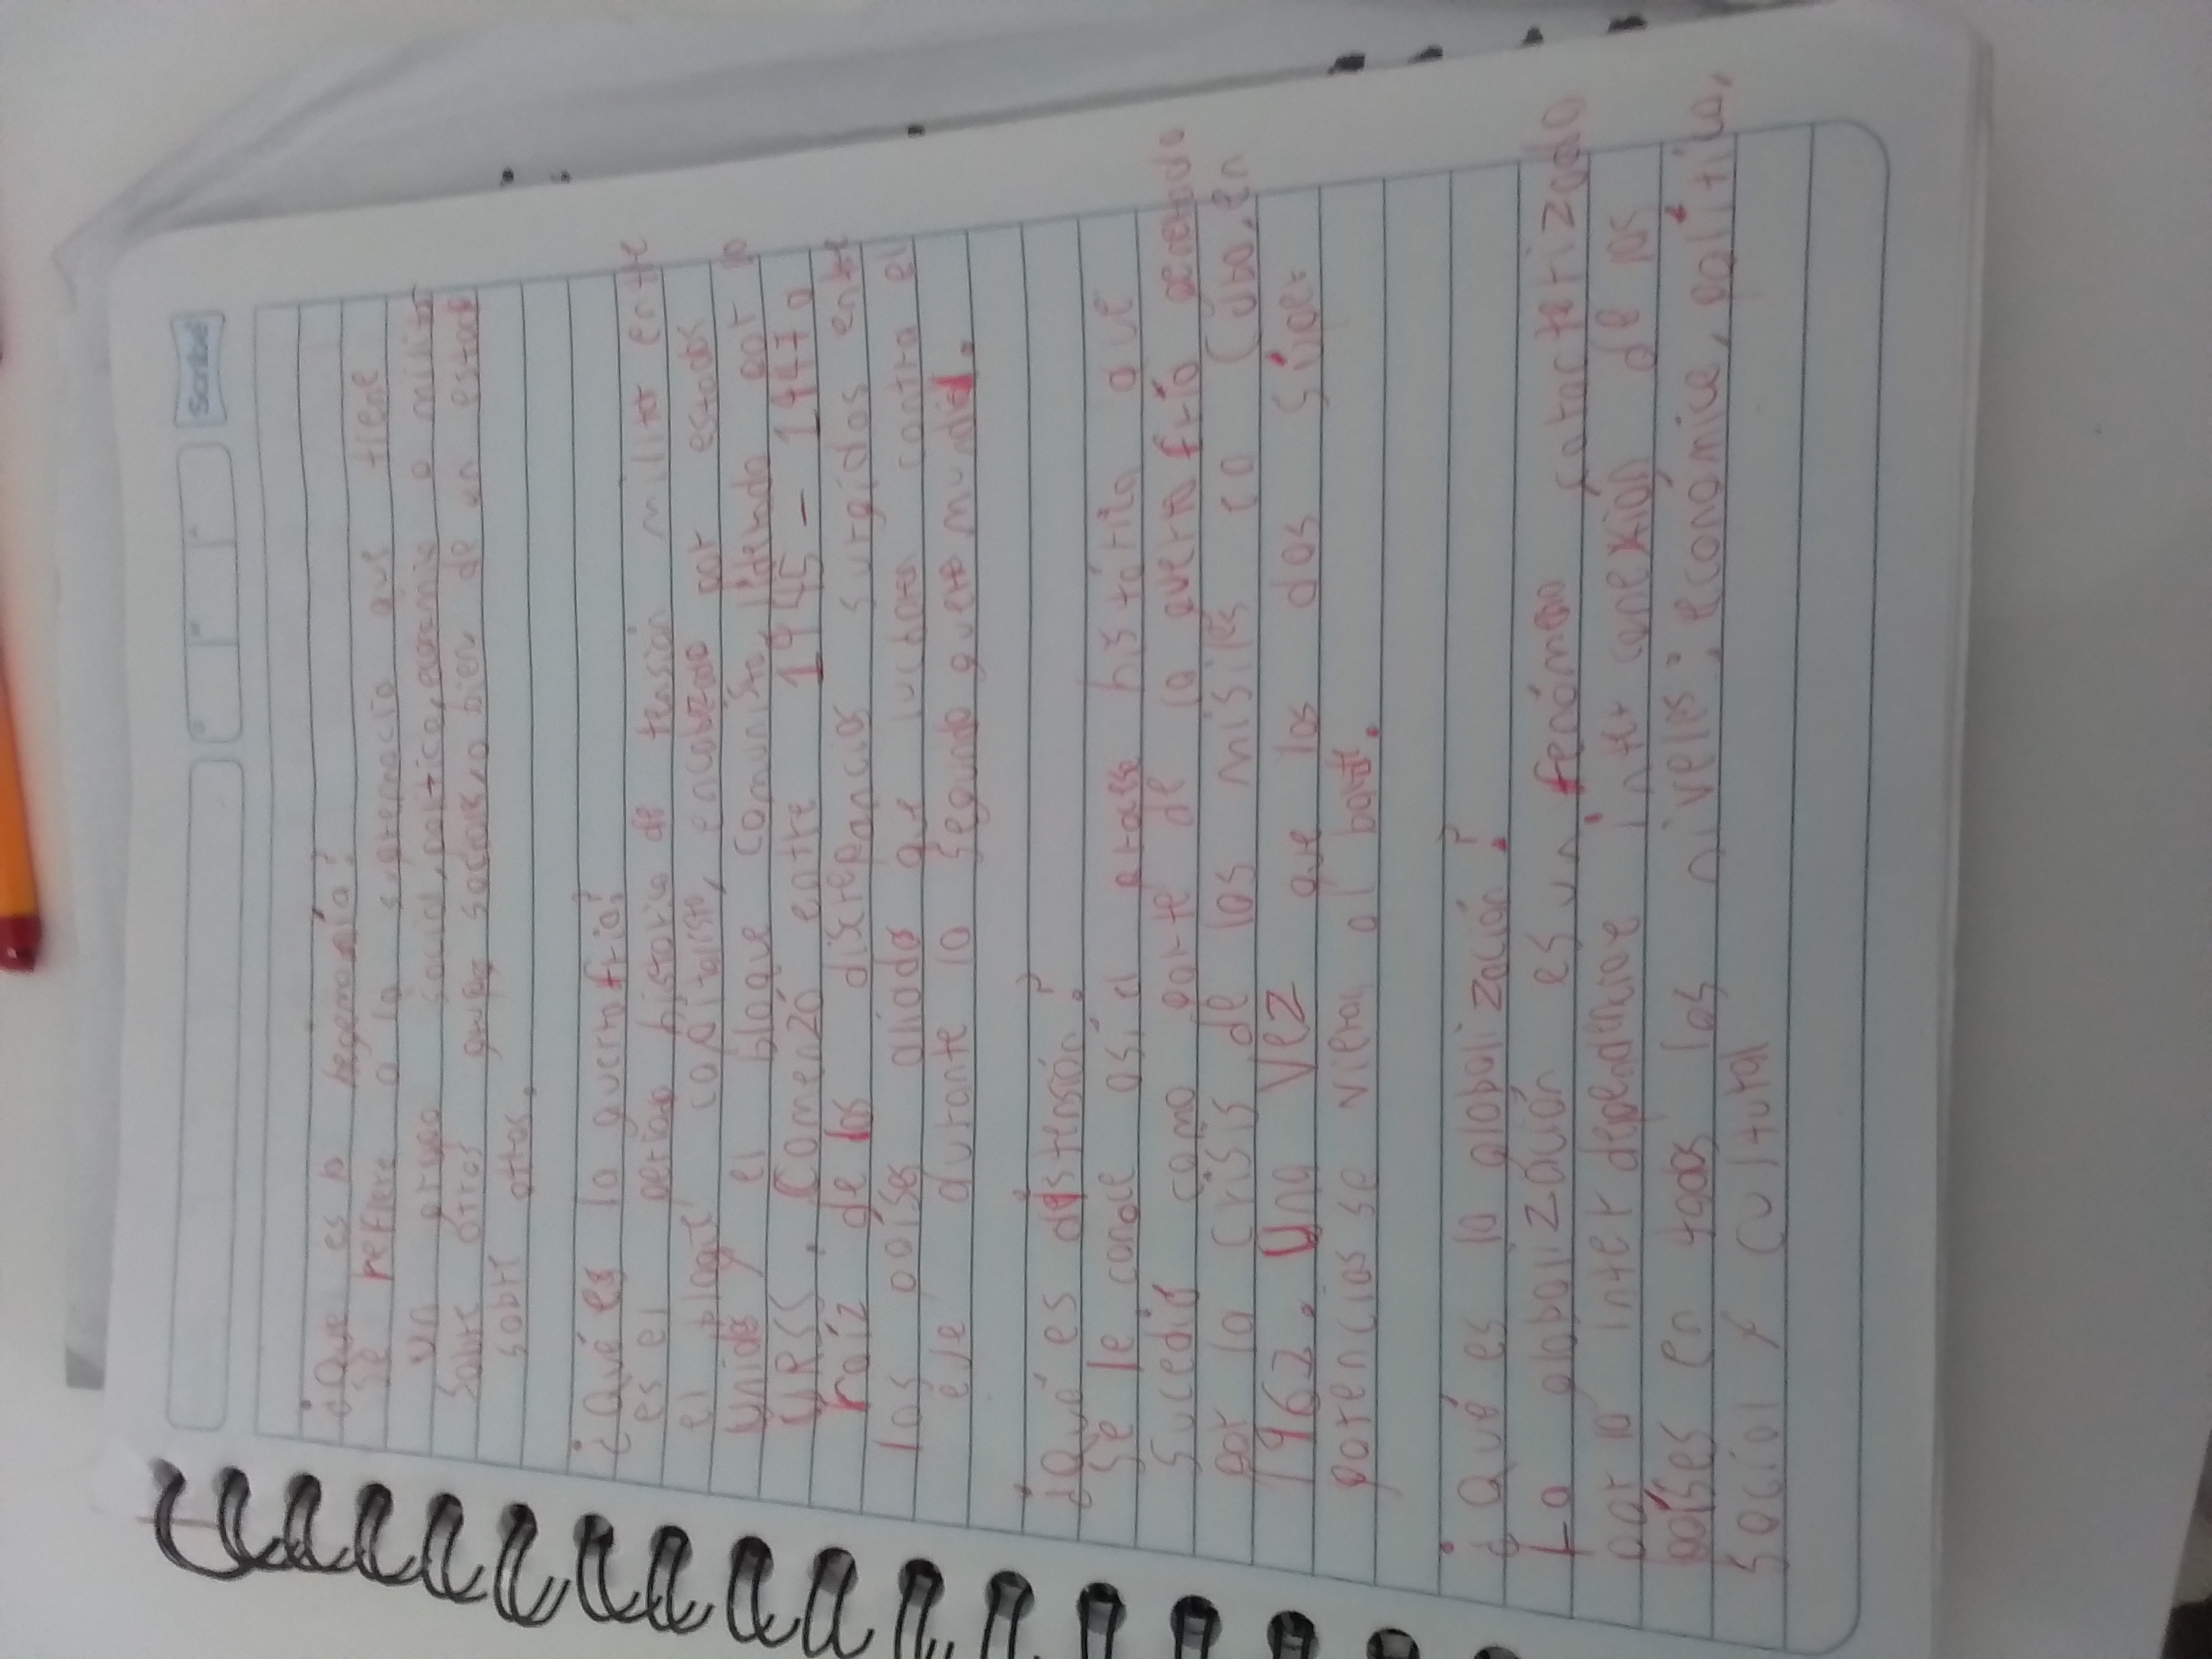 Scribe
¿Que es la hegemonía?
Se refiere a la supremacía que tiene
un grupo social, política, economía o militar
sobre otros grupos sociales, o bien de un estado
sobre otros.
¿Qué es la guerra fría?
es el periodo historico de tensión militar entre
el bloque capitalista, encabezado por estados
unidos y el bloque comunista liderado por la
URSS. Comenzó entre 1945 - 1947 a
raíz de las discrepancias surgidos entre
los países aliados que lucharon contra el
eje durante la segunda guerra mundial.
¿Qué es distensión?
Se le conoce así el proceso histórico que
sucedió como parte de la guerra fría
por la crisis de los misiles en Cuba, en
1962. Una vez que las dos súper
potencias se vieron al borde.
¿Qué es la globalización?
La globalización es un fenómeno caracterizado
por la inter dependencia e inter conexión de los
países en todos los niveles: económico, política,
social y cultural